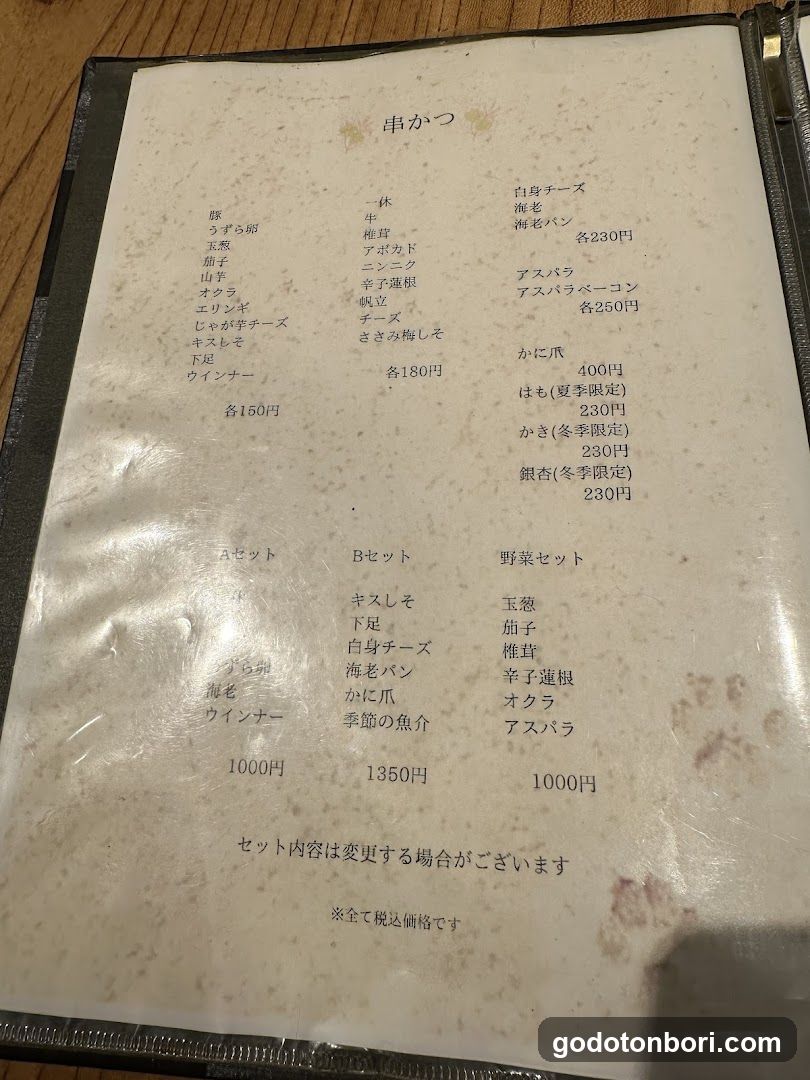 串かつ
豚
うずら卵
玉葱
茄子
山芋
オクラ
エリンギ
じゃが芋チーズ
キスしそ
下足
ウインナー
各150円
一休
牛
椎茸
アボカド
ニンニク
辛子蓮根
帆立
チーズ
ささみ梅しそ
各180円
白身チーズ
海老
海老パン
各230円
アスパラ
アスパラベーコン
各250円
かに爪
400円
はも(夏季限定)
230円
かき(冬季限定)
230円
銀杏(冬季限定)
230円
Aセット
牛
うずら卵
海老
ウインナー
1000円
Bセット
キスしそ
下足
白身チーズ
海老パン
かに爪
季節の魚介
1350円
野菜セット
玉葱
茄子
椎茸
辛子蓮根
オクラ
アスパラ
1000円
セット内容は変更する場合がございます
※全て税込価格です
godotonbori.com